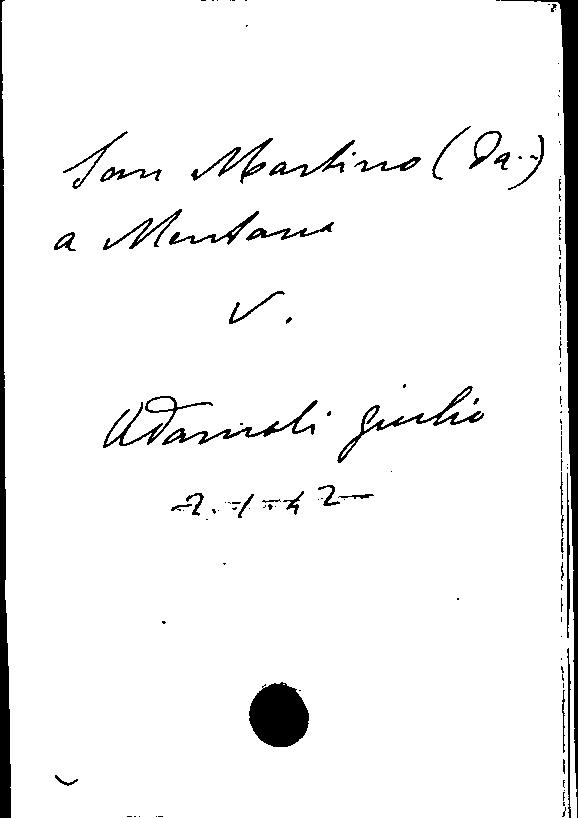 San Martino (Da..)
a Mentana
V.
Adamoli Giulio
2.1.42